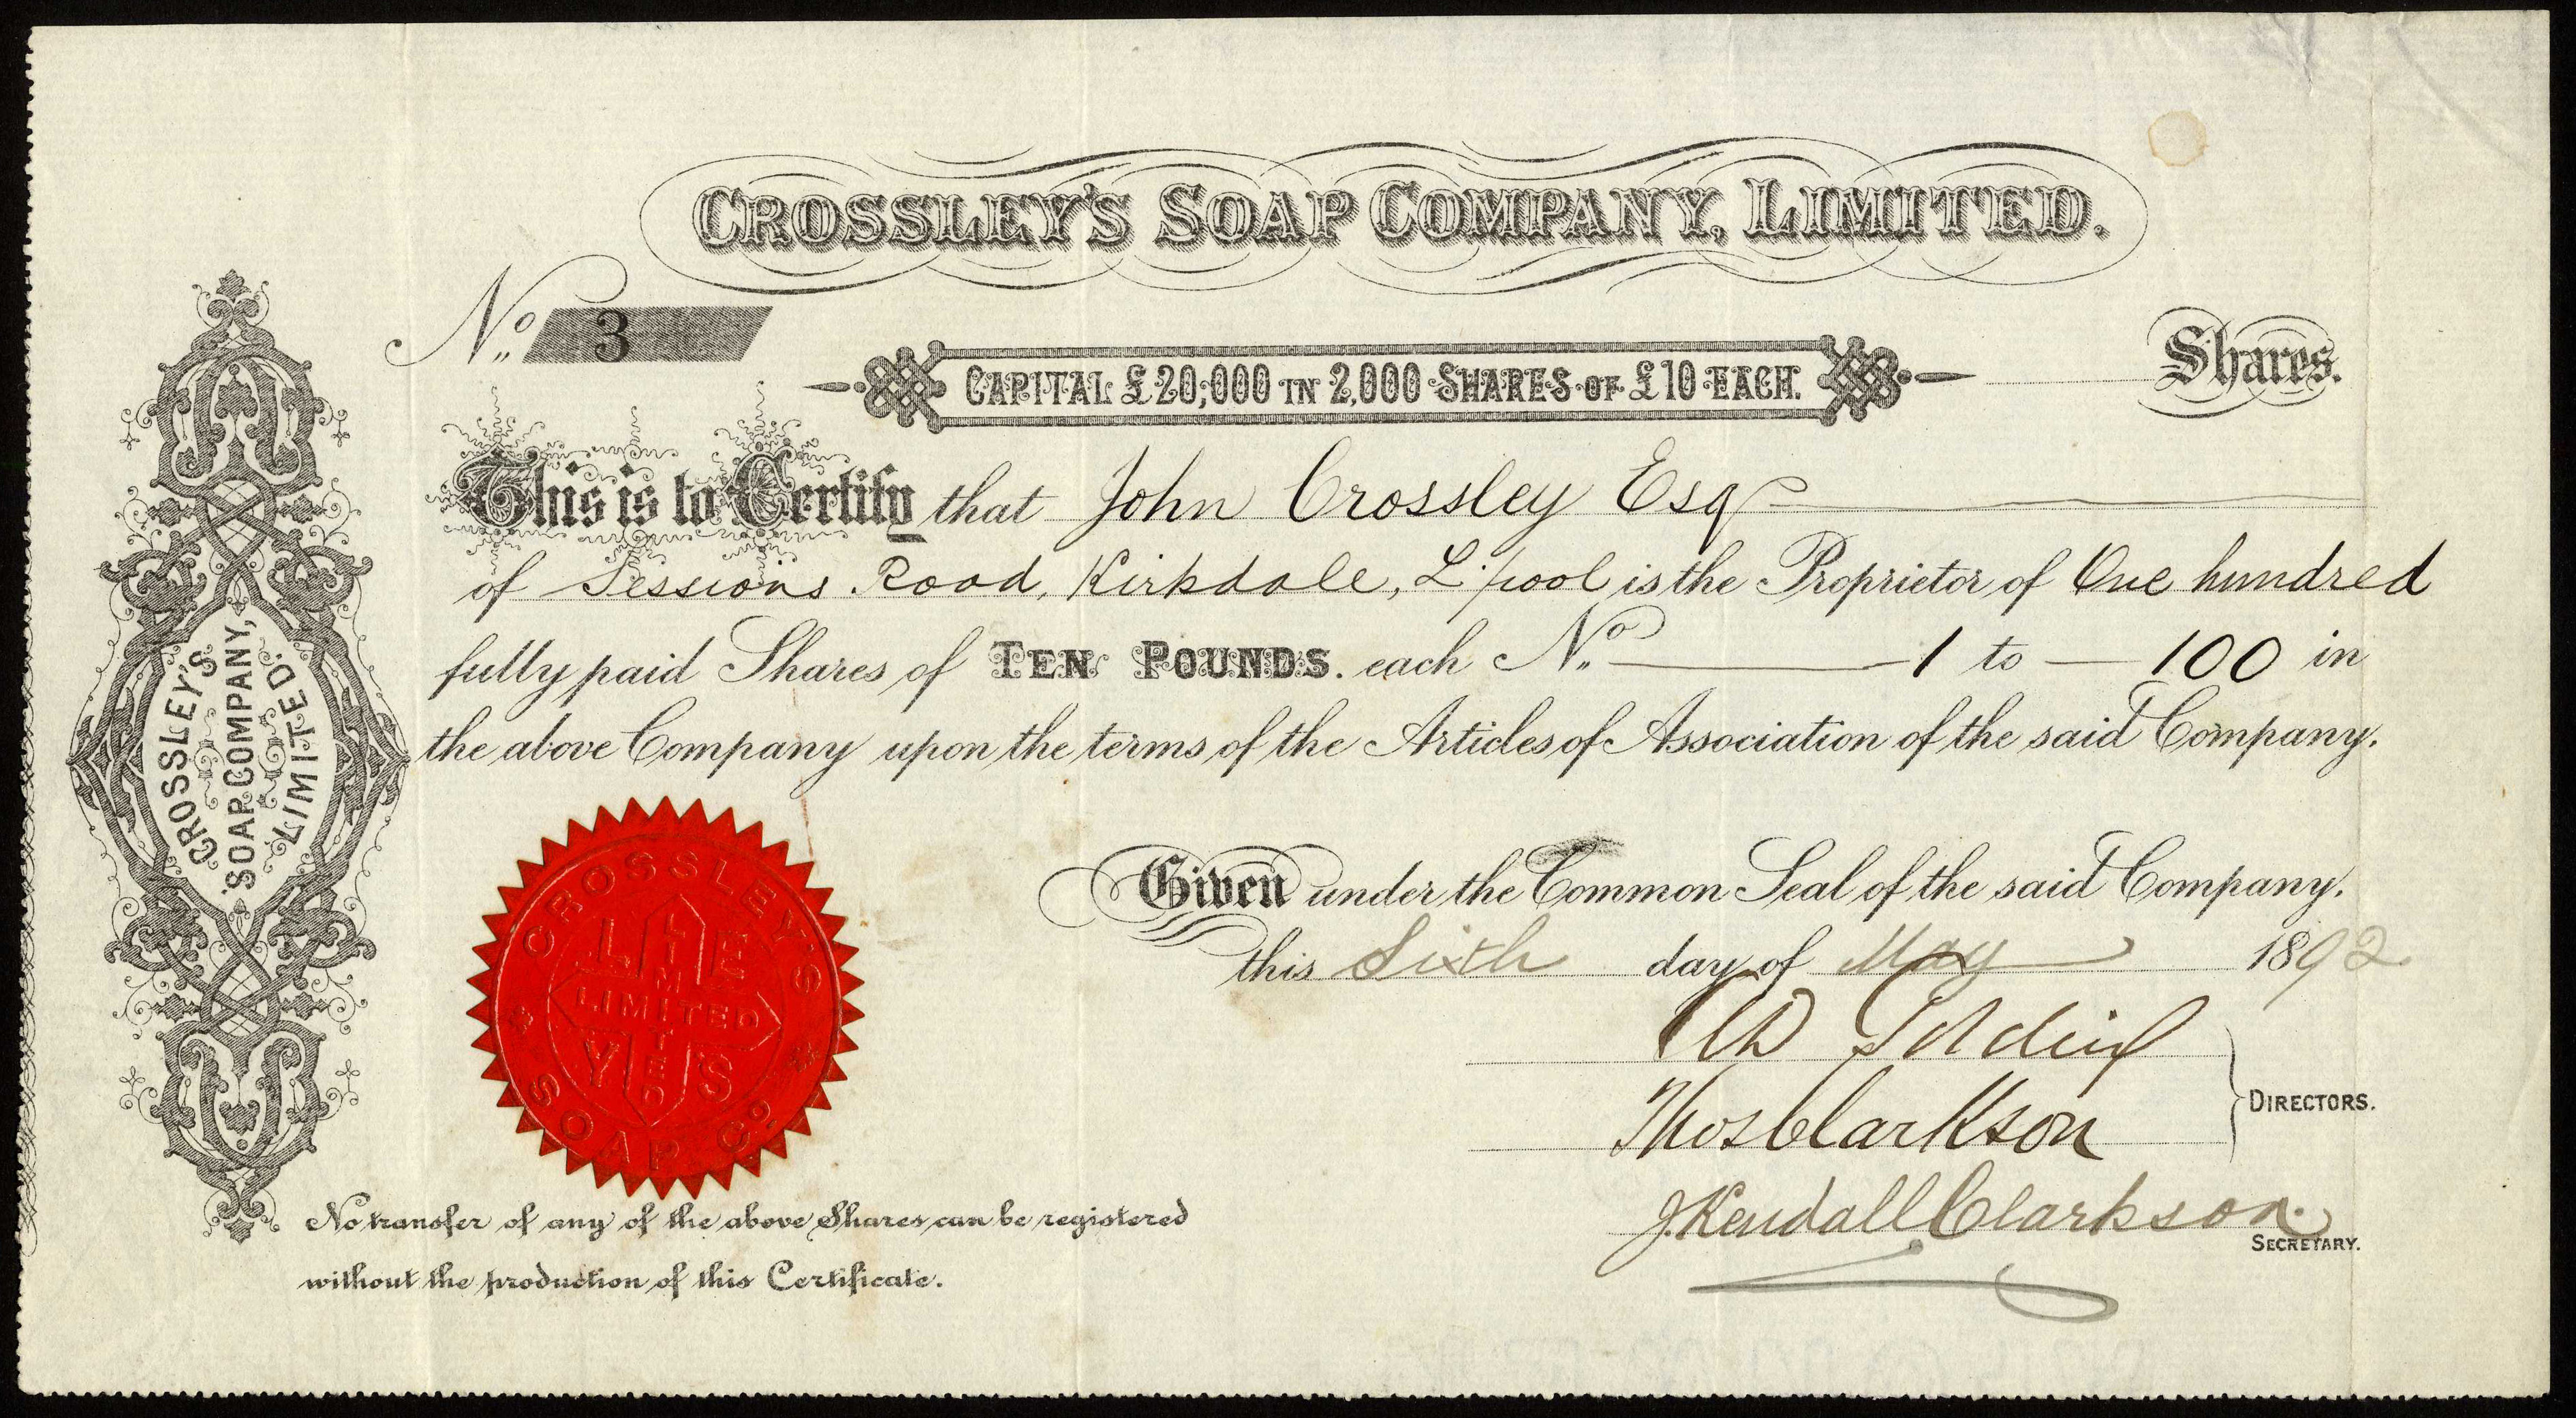 CROSSLEY'S SOAP COMPANY, LIMITED.
No. 3
CAPITAL £20,000 IN 2,000 SHARES OF £10 EACH.
Shares.
This is to Certify that John Crossley Esq
of Sessions Road, Kirkdale, L'pool is the Proprietor of One hundred
fully paid Shares of TEN POUNDS. each No. 1 to 100 in
the above Company upon the terms of the Articles of Association of the said Company.
CROSSLEY'S
SOAP COMPANY,
LIMITED.
Given under the Common Seal of the said Company.
this Sixth day of May 1892
Thos Clarkson
DIRECTORS.
J. Kendall Clarkson.
SECRETARY.
CROSSLEY'S SOAP CO.
LIMITED
No transfer of any of the above Shares can be registered
without the production of this Certificate.